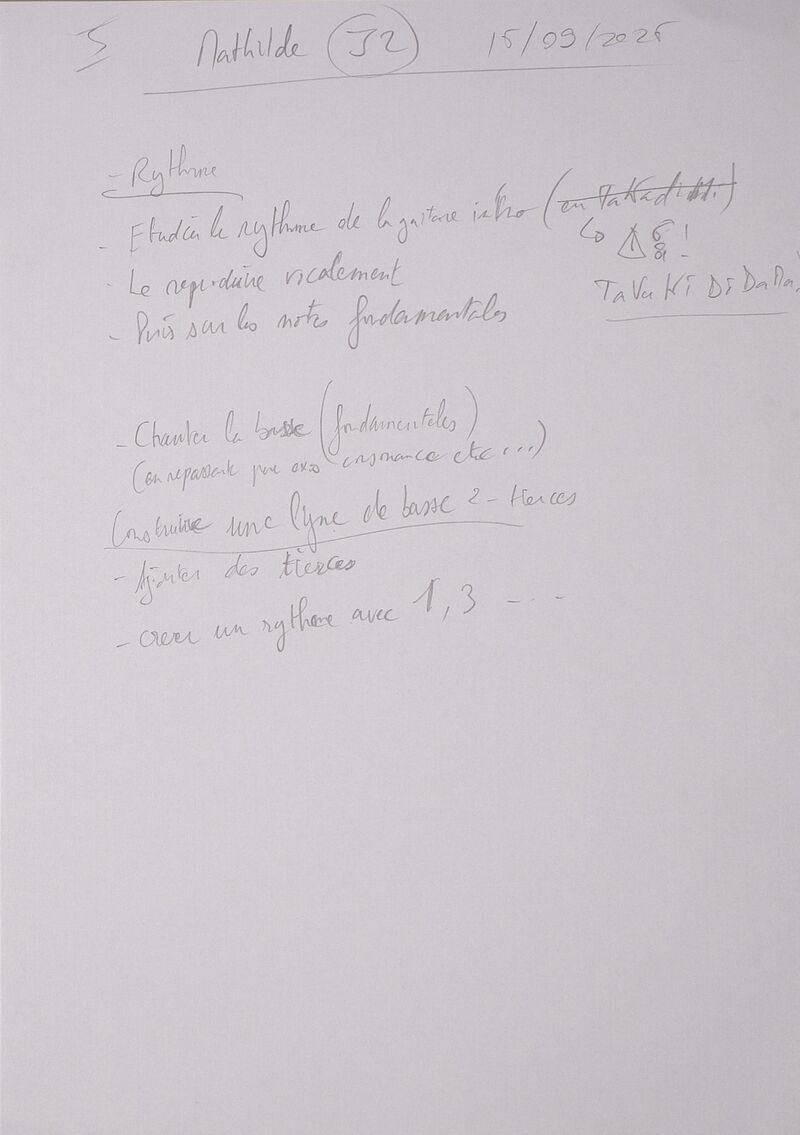 5 Mathilde J2 15/09/2025
- Rythme
- Etudier le rythme de la guitare intro (en Takadimi)
↳ ⚠ 6/8 !
- Le reproduire vocalement
TaVaKiDiDaMa
- Puis sur les notes fondamentales
- Chanter la basse (fondamentales)
(en repassant par exo consonance etc ...)
Construire une lyne de basse 2 - tierces
- Ajouter des tierces
- Creer un rythme avec 1, 3 - - -